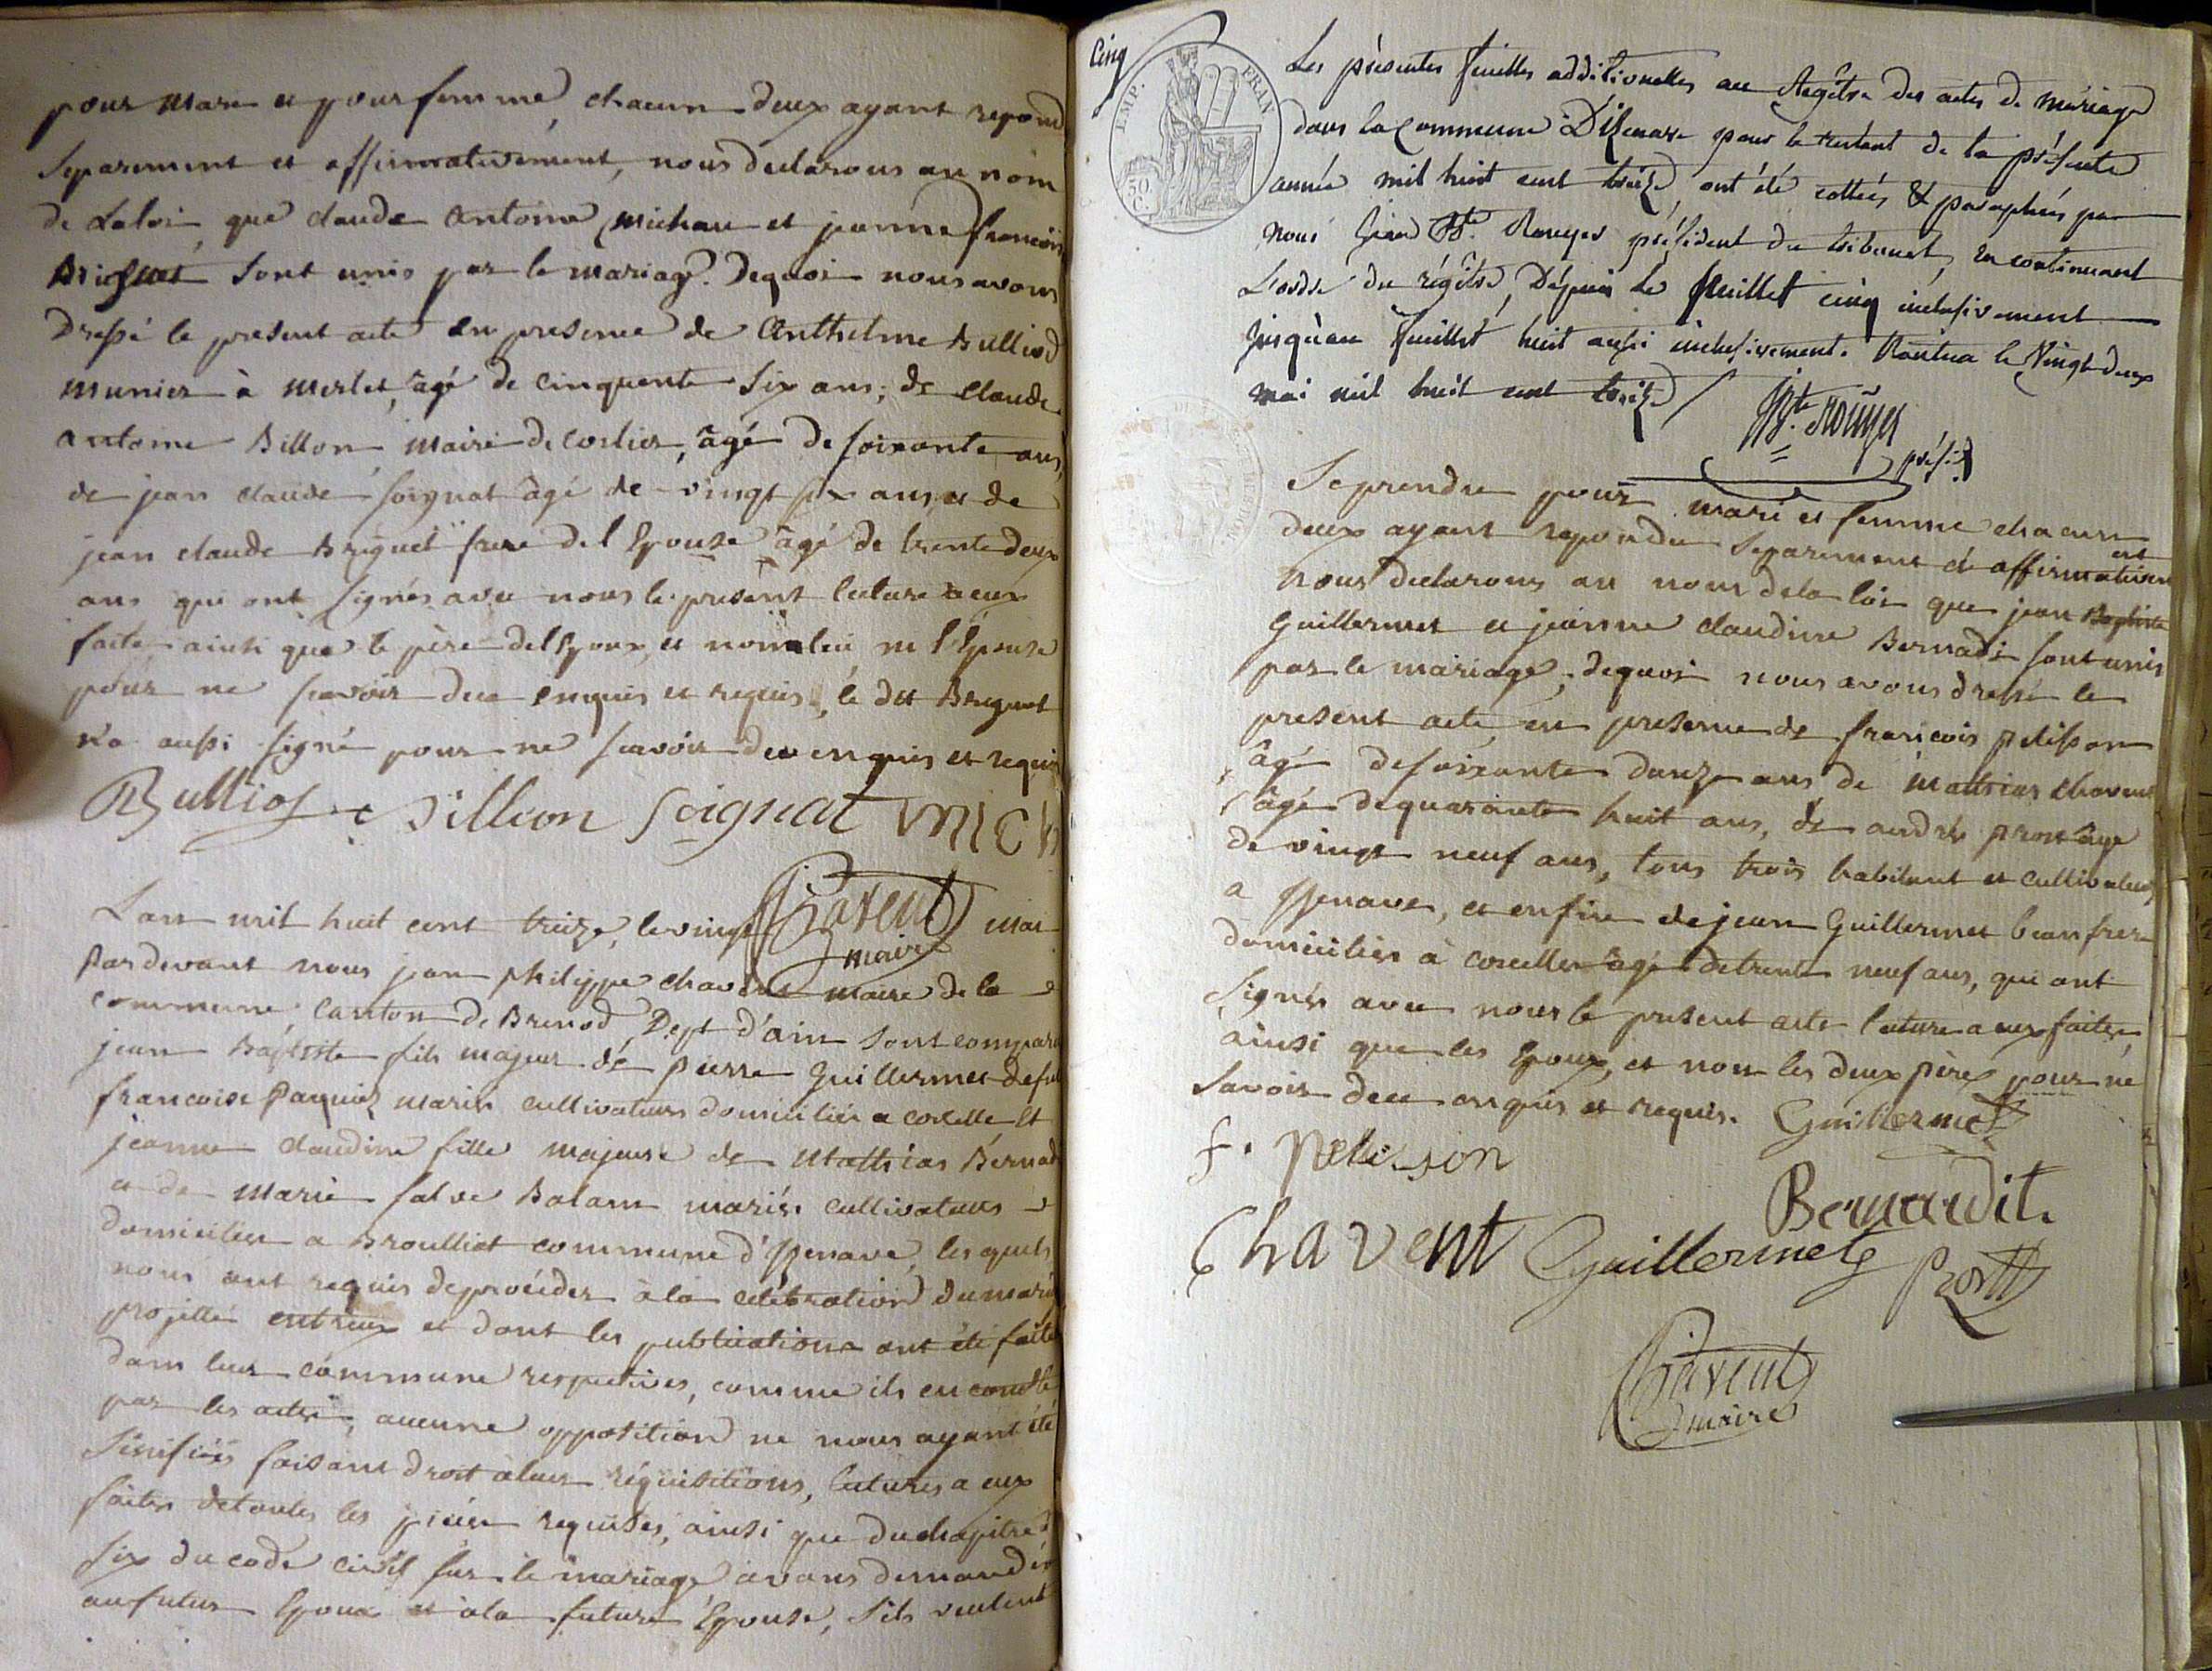 pour mari et pour femme, chacun deux ayant repond
Separement et affirmativement, nous declarons au nom
de Laloi, que claude antoine michau et jeanne francois
Briguet Sont unis par le mariage. Dequoi nous avons
Dressé le present acte en presence de Anthelme Bulliod
munier à merlet, âgé de cinquente Six ans; de claude
antome Billon, maire de corlier, âgé de soixante ans,
de jean claude soignat âgé de vingt six ans, et de
jean claude Briguet frere de l'Epouse âgé de trente deux
ans qui ont signés avec nous le present lecture a eux
faite ainsi que le père del'Epoux, et non lui ni l'Epouse
pour ne scavoir dee enquis et requis, le dit Briguet
n'a aussi signé pour ne scavoir dee enquis et requis
Bulliod Billion Soignat MICH
Chavent
maire
Lan mil huit cent treize, le vingt mai
Pardevant nous jean philippe chavent maire de la
commune, Canton de Brenod, Dept d'ain Sont compara
jean Baptiste fils majeur de pierre Guillermet defu
francoise Paquier mariés cultivateurs domiciliés a corcelle Et
jeanne claudine fille majeure de Mathias Bernad
et de Marie falve Balam mariés cultivateurs
domiciliés a Broulliat commune d'Izenave, lesquels
nous ont requis deprocéder à la célébration du maria
projetté entreux et dont les publications ont été faite
dans leur commune respectives, comme ils en conste
par les actes, aucune opposition ne nous ayant été
Sinifiés faisant droit a leur réquisitions, lectures a eux
faites detoutes les pièces requises, ainsi que duchapitre
six du code civil sur le mariage avons demandé
au futur Epoux et ala future Epouse, s'ils veulent
Cinq
EMP. FRAN
50 C.
Les présentes feuilles additionnelles au Régitre des actes de mariage
dans la Commune D'Izenave pour le restant de la présente
année mil huit cent treize, ont été cottées & paraphées par
nous Jean Bte. Rouyer président du tribunal, en continuant
L'ordre du régitre, Dépuis le feuillet cinq inclusivement
Jusqu'au feuillet huit aussi inclusivement. Nantua le Vingt deux
mai mil huit cent treize
Bte. Rouyer
présid
Seprendre pour mari et femme chacun
deux ayant repondu Separement et affirmativem
ent
Nous declarons au nom dela loi que jean Baptiste
Guillermet et jeanne claudine Bernadi sont unis
par le mariage; dequoi nous avons dressé le
present acte en presence de francois pelisson
âgé desoixante douze ans de Mathias chavent
âgé dequarante huit ans, de andré prost âge
de vingt neuf ans, tous trois habitant et cultivateurs
a Izenave, et enfin de jean Guillermet beaufrere
domicilier à corcelles âgé detrente neuf ans, qui ont
Signés avec nous le present acte lecture a eux faite
ainsi que les Epoux, et non les deux pères pour ne
Savoir dee enquis et requis. Guillermet
f. Pelisson
Bernardit.
Chavent Guillermet Prost
Chavent
maire